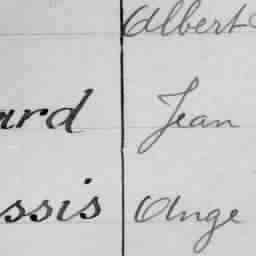 Albert
ard Jean
ssis Ange